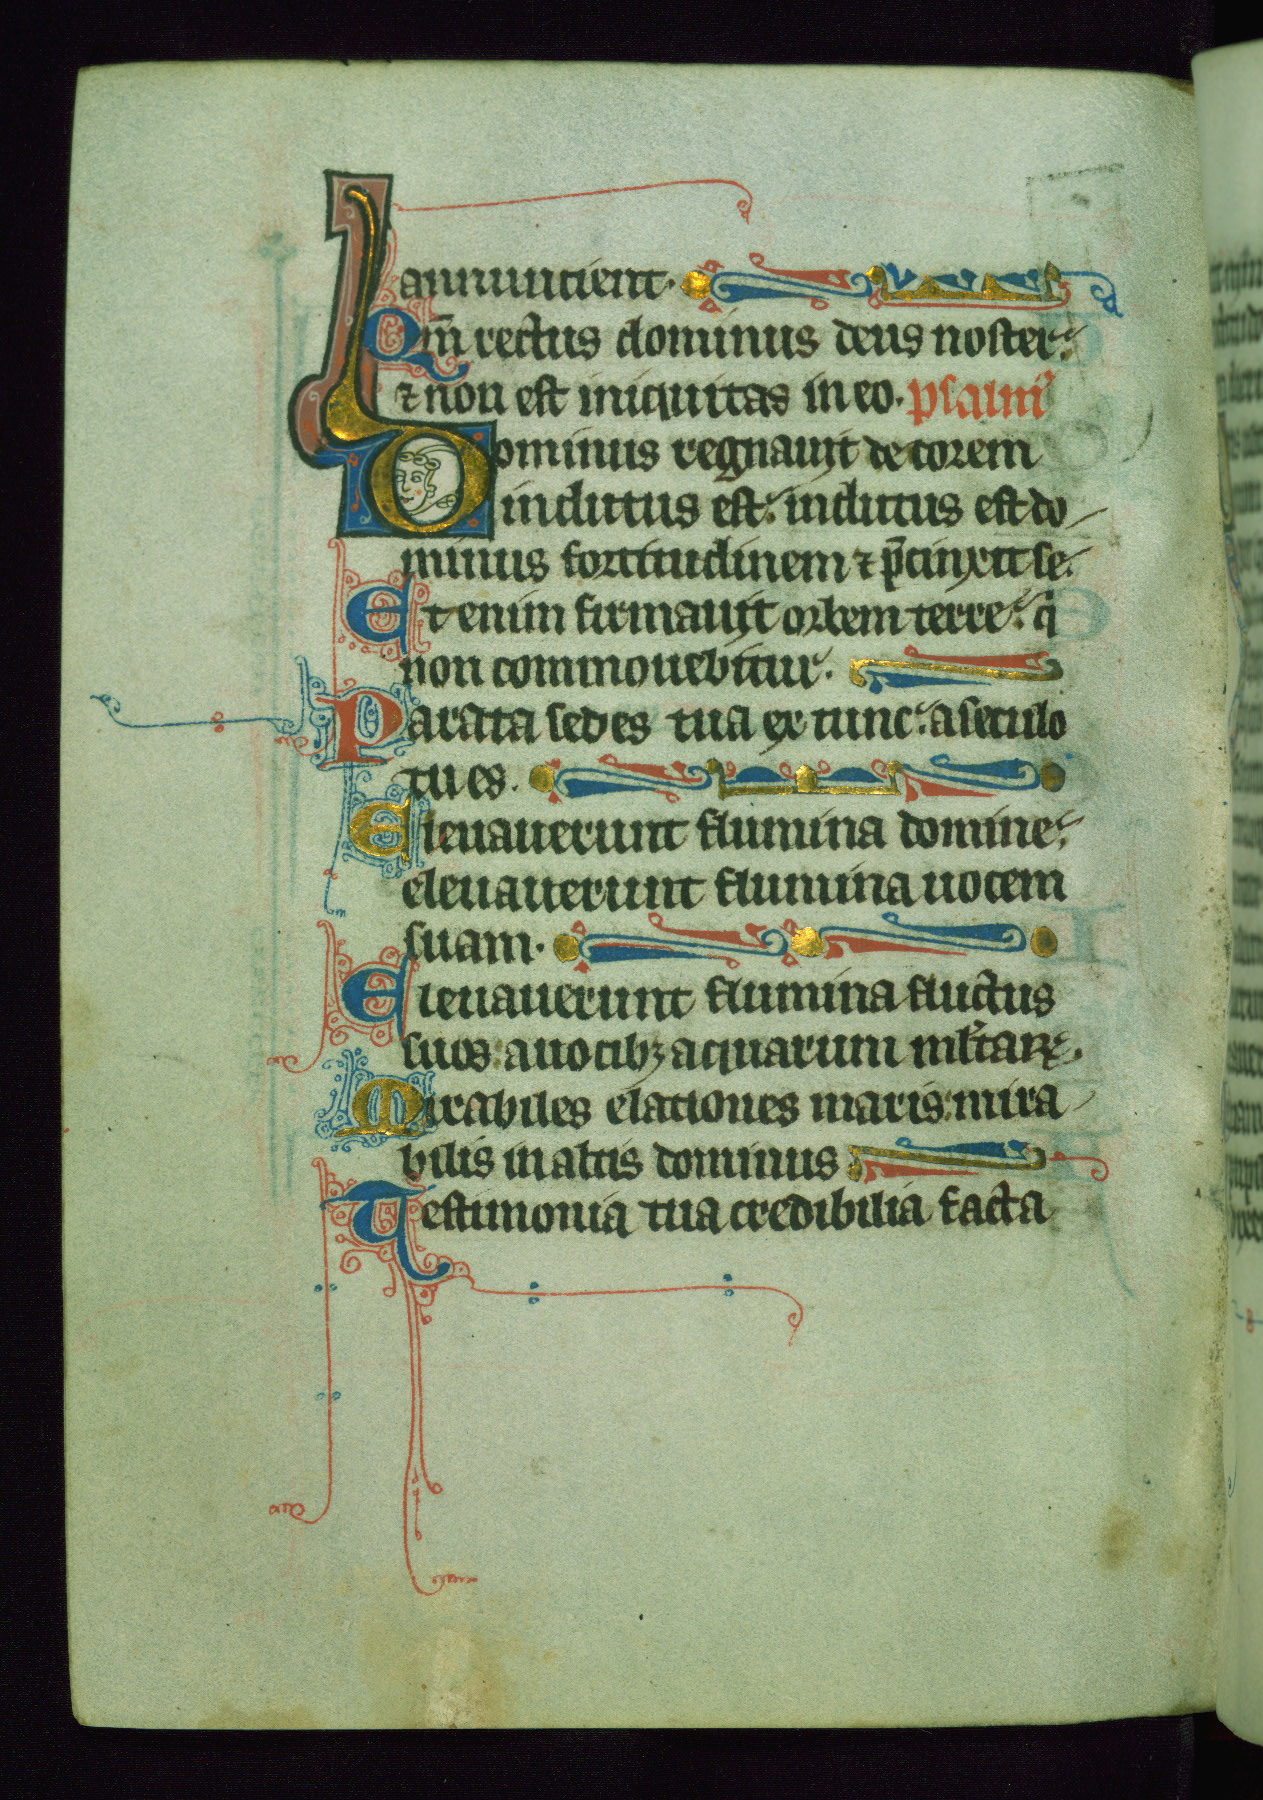 annuncient.
Qm̄ rectus dominus deus noster:
⁊ non est iniquitas in eo. psalmꝰ
Dominus regnauit decorem
indutus est: indutus est do
minus fortitudinem ⁊ p̄cinxit se.
Et enim firmauit orbem terre: qͥ
non commouebitur.
Parata sedes tua ex tunc: a seculo
tu es.
Eleuauerunt flumina domine:
eleuauerunt flumina uocem
suam.
Eleuauerunt flumina fluctus
suos: a uocibꝫ aquarum ml̓taꝝ.
Mirabiles elationes maris: mira
bilis in altis dominus
Testimonia tua credibilia facta